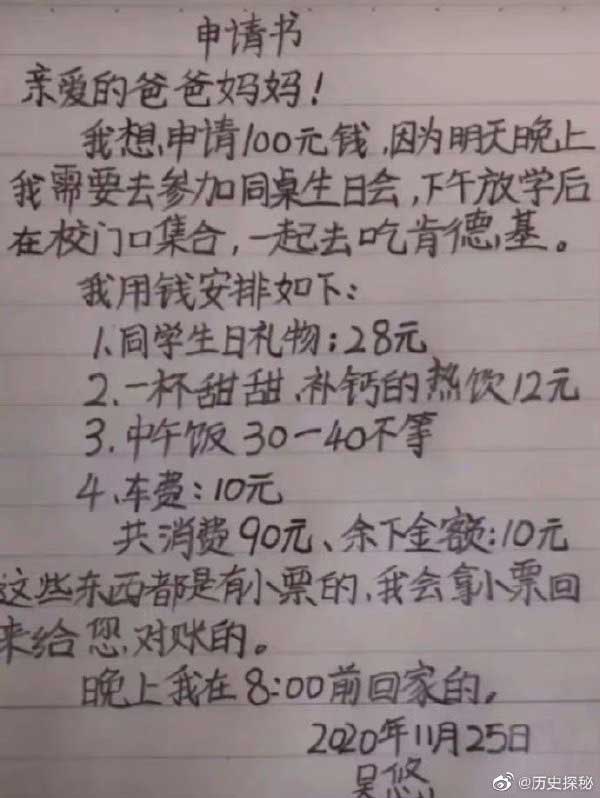 申请书
亲爱的爸爸妈妈!
我想申请100元钱,因为明天晚上
我需要去参加同桌生日会,下午放学后
在校门口集合,一起去吃肯德基。
我用钱安排如下:
1、同学生日礼物:28元
2、一杯甜甜、补钙的热饮12元
3、中午饭30一40不等
4、车费:10元
共消费90元、余下金额:10元
这些东西都是有小票的,我会拿小票回
来给您对账的。
晚上我在8:00前回家的。
2020年11月25日
吴悠
@历史探秘